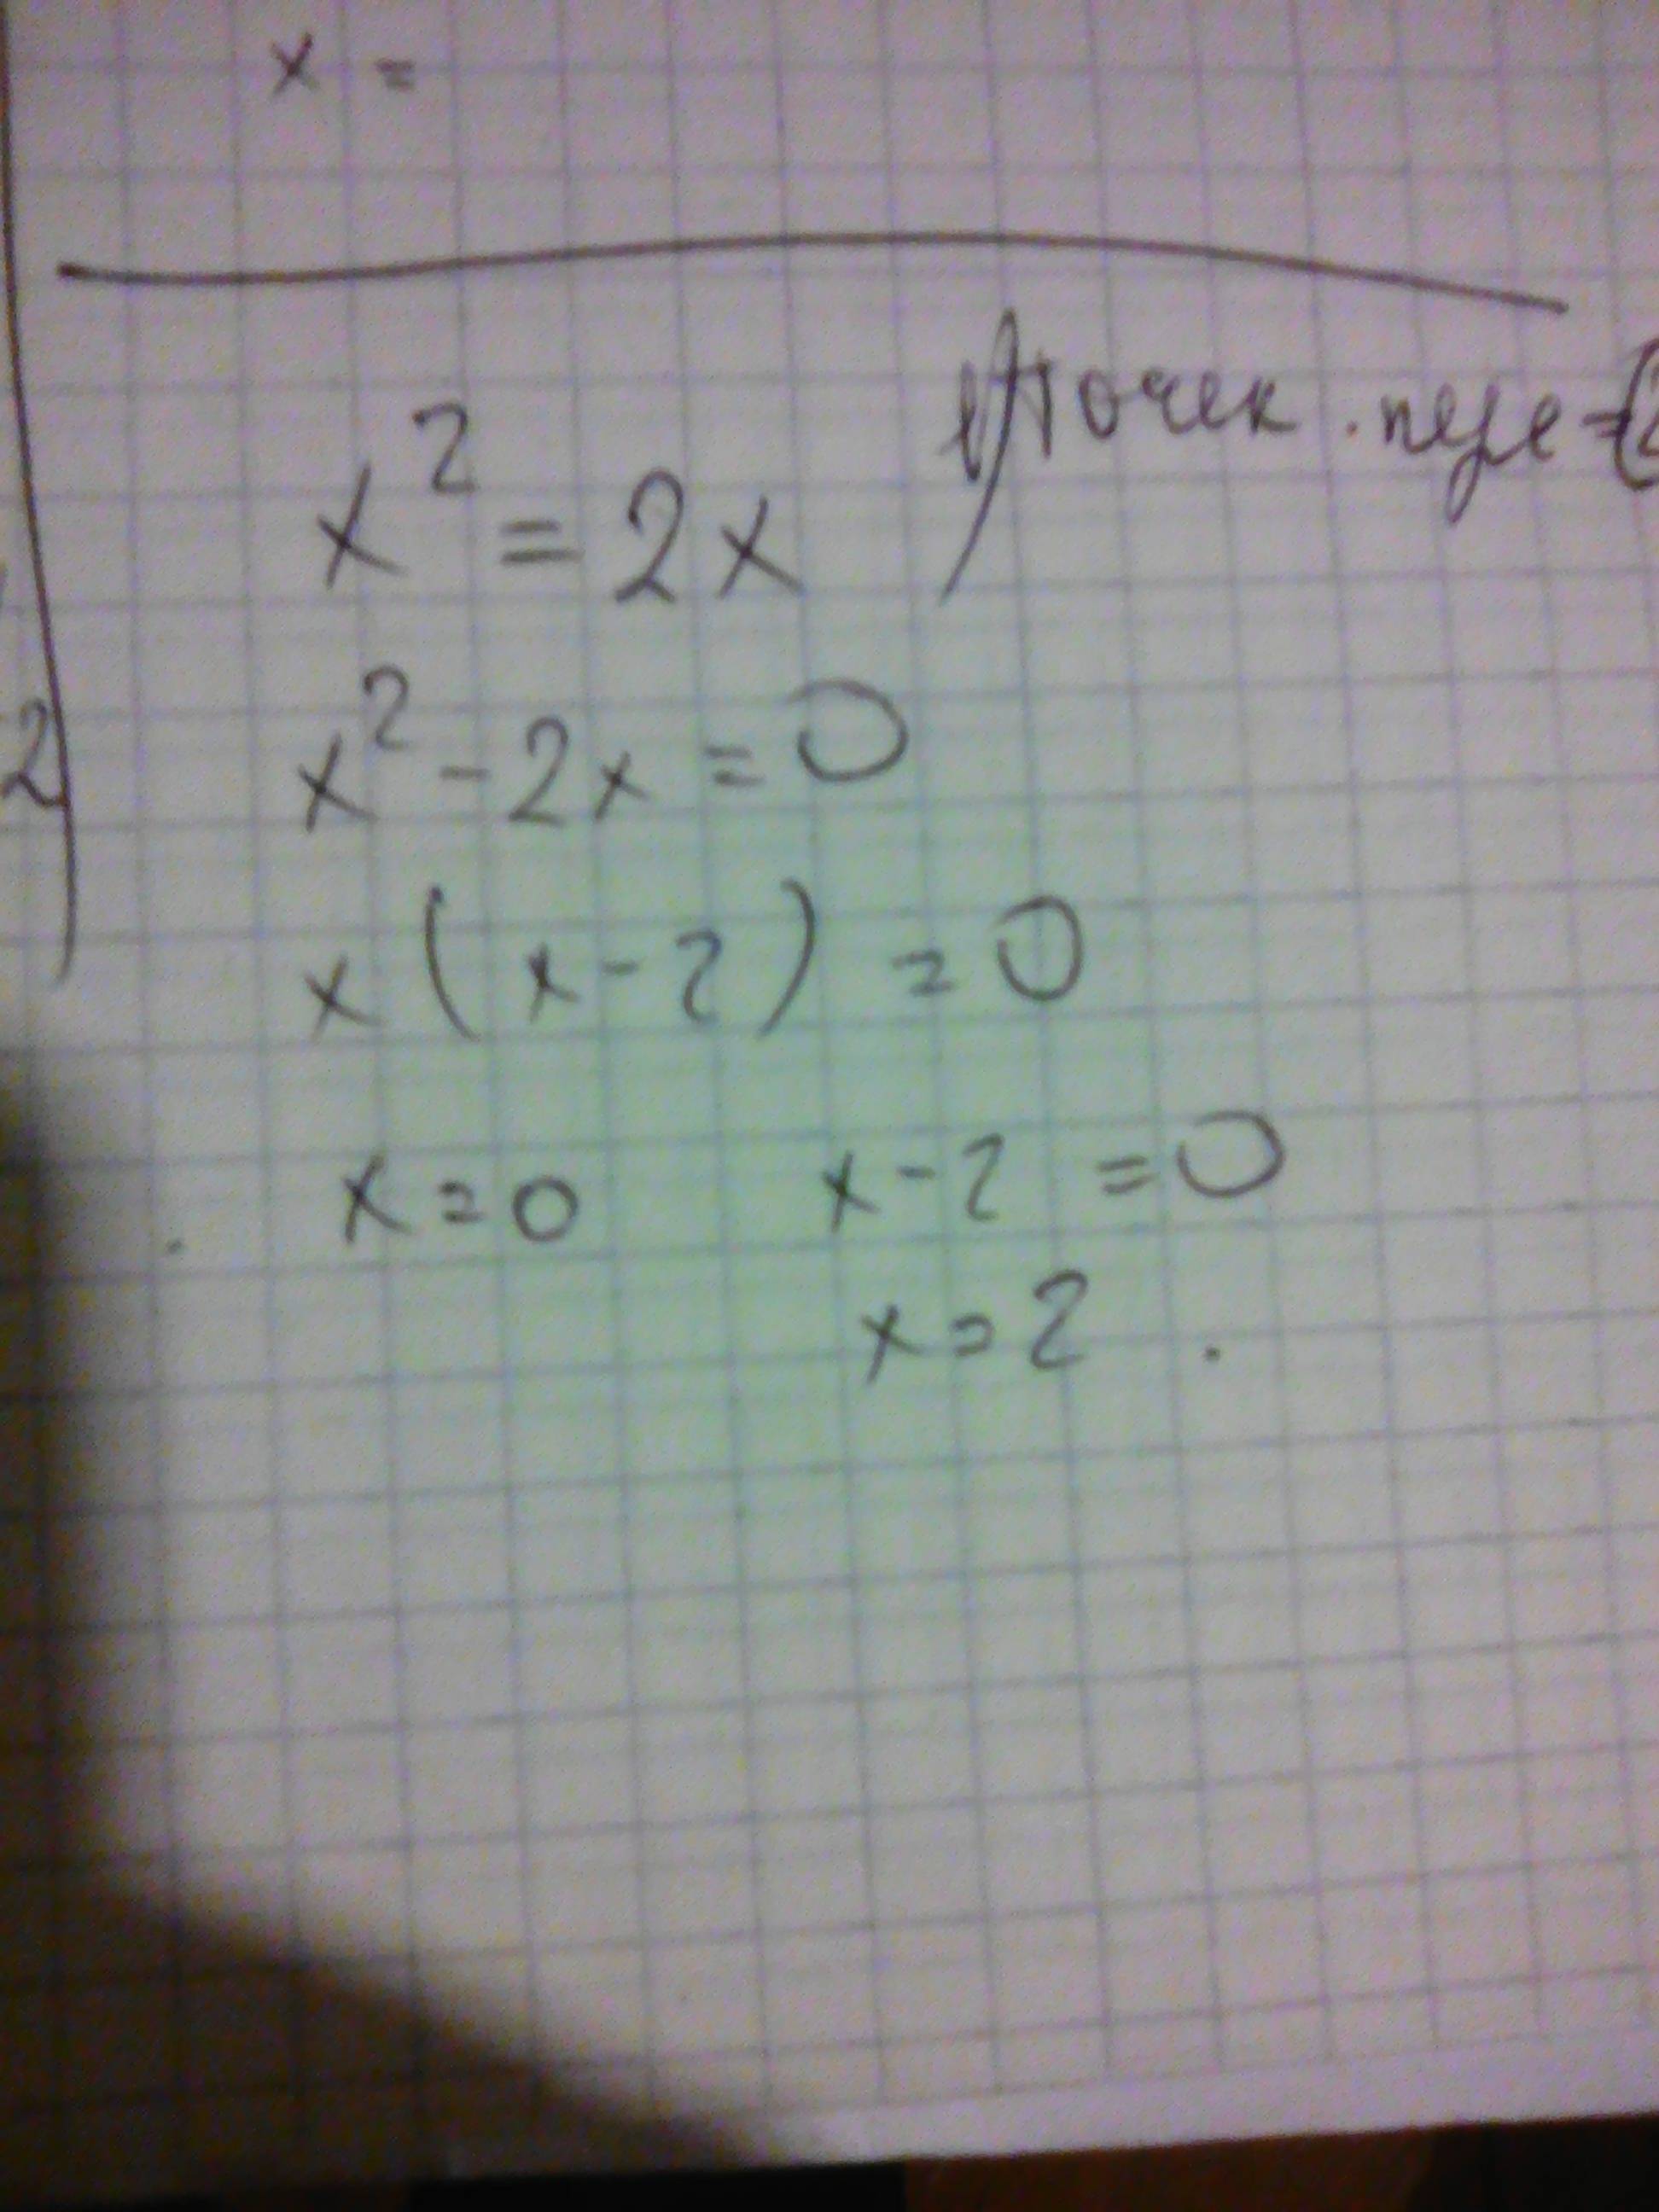 x =
x² = 2x
точек . пере = (2
x² - 2x = 0
2
x ( x - 2 ) = 0
x = 0 x - 2 = 0
x = 2 .